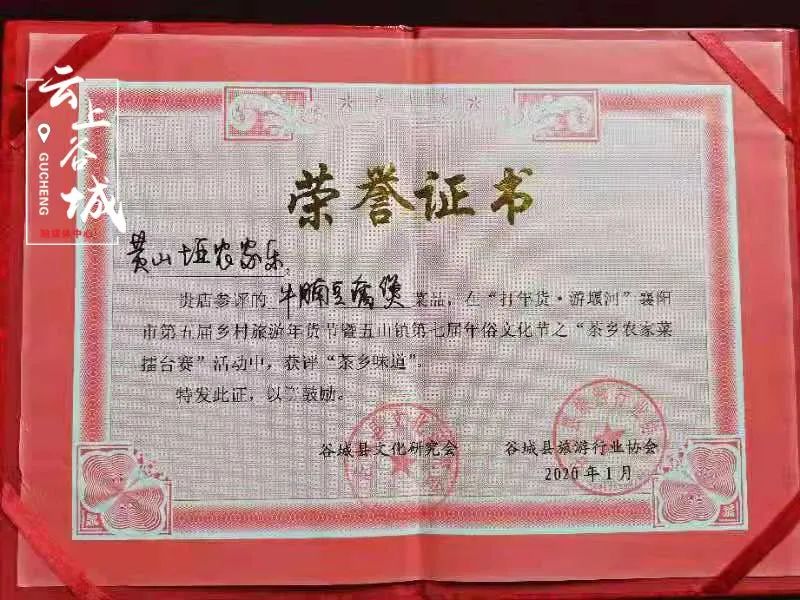 云上谷城
GUCHENG
融媒体中心
荣誉证书
黄山垭农家乐:
贵店参评的 牛腩豆腐煲 菜品,在“打年货·游堰河”襄阳
市第五届乡村旅游年货节暨五山镇第七届年俗文化节之“茶乡农家菜
擂台赛”活动中,获评“茶乡味道”。
特发此证,以资鼓励。
谷城县文化研究会 谷城县旅游行业协会
2020年1月